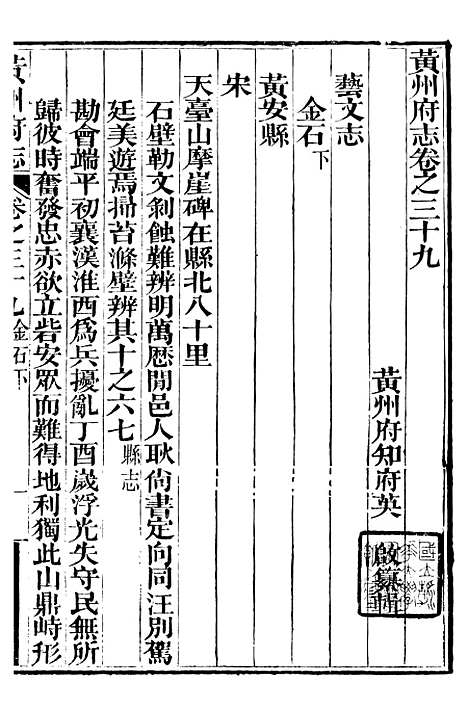 黃州府志卷之三十九
黃州府知府英啟纂輯
藝文志
金石下
黃安縣
宋
天臺山摩崖碑在縣北八十里
石壁勒文剝蝕難辨明萬厯閒邑人耿尚書定向同汪別駕
廷美遊焉掃苔滌壁辨其十之六七縣志
勘會端平初襄漢淮西爲兵擾亂丁酉歲浮光失守民無所
歸彼時奮發忠赤欲立砦安眾而難得地利獨此山鼎峙形
黃州府志
卷之三十九金石下
一